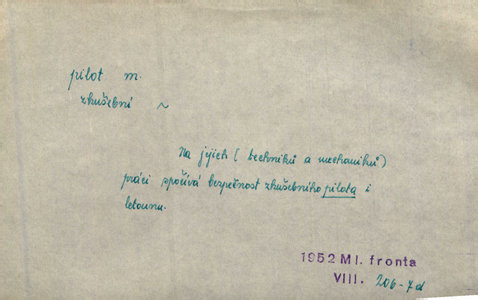 pilot m.
zkušební ~
Na jejich (techniků a mechaniků)
práci spočívá bezpečnost zkušebního pilota i
letounu.
1952 Ml. fronta
VIII. 206-7d